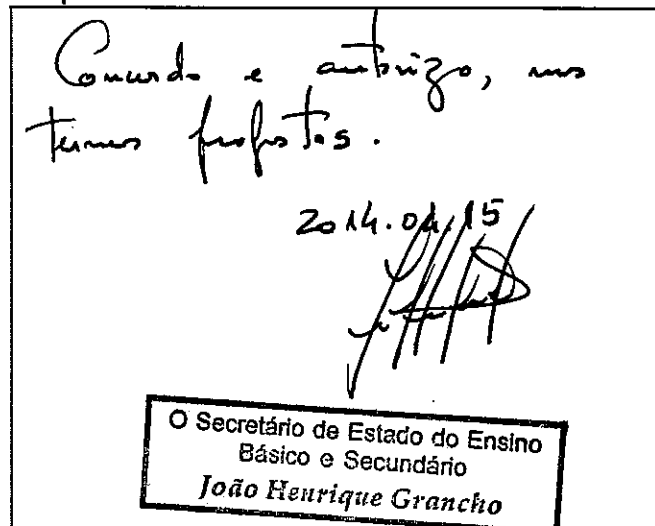 Concordo e autorizo, nos
termos propostos.
2014.04.15
O Secretário de Estado do Ensino
Básico e Secundário
João Henrique Grancho